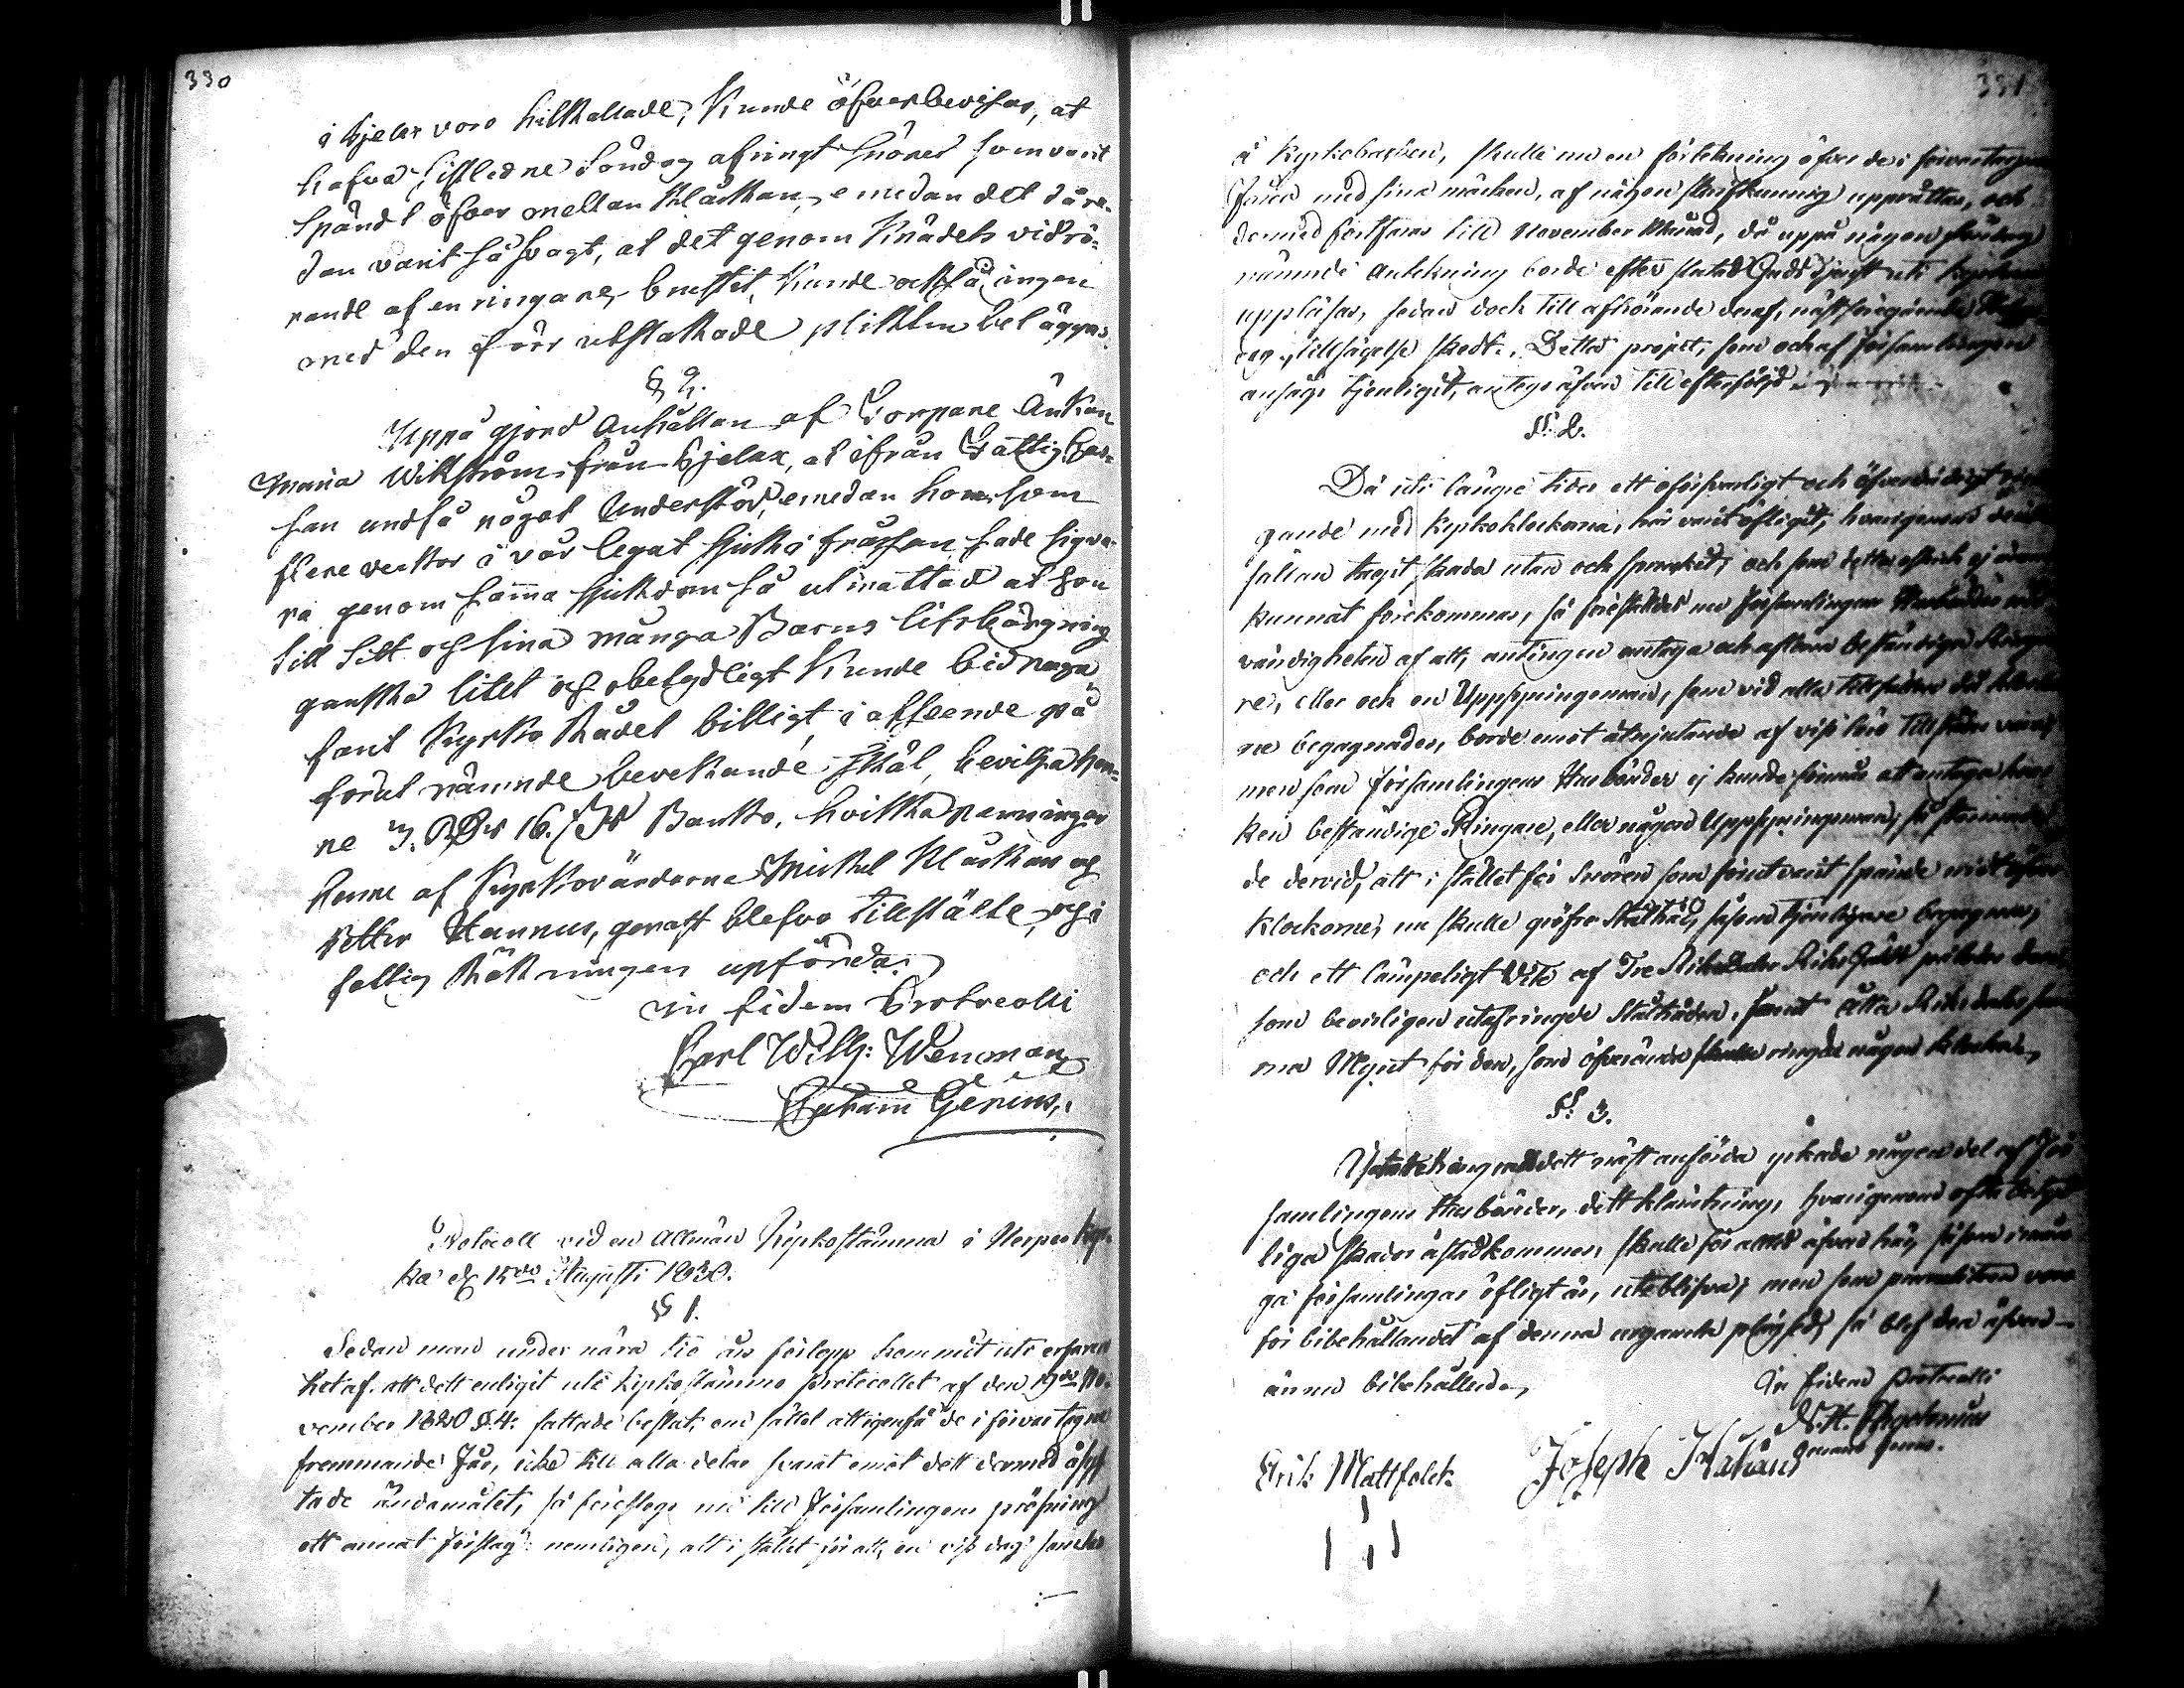 330
i Pjelax voro tillkallade, kunde öfverbevisas, at
hafva sistledne Söndag afringt Snöret som varit
spändt öfver mellan Kläckan, emedan det då re-
dan varit så svagt, at det genom Knädets vidrö-
rande af en ringare, brustit, kunde ock så ingen
med den förr utstakade plikten beläggas.
§ 2.
Uppå gjord Anhållan af Torpare Änkan
Maria Wikström från Pjelax, at ifrån Fattig Cas-
san undfå något Understöd, emedan hon som
flere veckor i vår legat sjuk i frässan hade sig va-
ra genom samma sjukdom så utmattad at hon
till sitt och sina många Barns lifsbärgning
ganska litet och obetydligt kunde bidraga
fant Kyrko Rådet billigt, i afseende på
förut nämnde bevekande skäl, bevilja hen-
ne 3. RDr 16. sk Banko, hvilka penningar
henne af Kyrkovärdarne Mickel Klåckars och
Petter Hannus, genast blefvo tillstälte, och i
fattig Räkningen upförda.
in fidem Protocolli
Carl Wilh: Wenman
Johan Genius.
Protocoll vid en Allmän Kyrkostämma i Nerpes Kyr-
ka d 15de Augusti 1830.
§ 1.
Sedan man under nära tio års förlopp kommit uti erfaren
het af, att dett enligit uti Kyrkostämmo protocollet af den 19de No-
vember 1820 §. 4. fattade beslut, om sättet att igenfå de i förvar tagne
fremmande Får, icke till alla delar svarat emot dett dermed åsyf
tade ändamålet, så föreslogs nu till Församlingens pröfning
ett annat förslag: nemligen, att i stället för att, en viss dag samlas
331
å Kyrkobacken, skulle nu en förtekning öfver de i förvar tagne
Fåren med sina märken, af någon skrifkunnig upprättas, och
dermed fortfaras till November Månad, då uppå någon Söndag
nämnde Antekning borde efter slutad Gudstjenst uti Kyrkan
uppläsas, sedan dock till afhörande deraf, nästföregående
dag, tillsägelse skedt. Dettta project, som ock af Församlingen
ansågs tjenligit, antogs äfven till efterföljd
§. 2.
Då uti längre tider ett oförsvarligt och öfverdådigt rin-
gande med Kyrkoklockorna, här varit öfligit, hvarigenom de
sällan tagit skada utan och spruckit; och som detta oskick ej annars
kunnat förekommas, så föreställdes nu Församlingens Husbönder nöd-
vändigheten af att, antingen antaga och aflöna beständige Ringa-
re, eller och en Uppsyningsman, som vid alla tillfällen då klockor-
ne begagnades, borde emot åtnjutande af viss lön tillstädes vara;
men som Församlingens Husbönder ej kunde förmås att antaga hvar-
ken beständige Ringare, eller någon Uppsyningsman, så stannade
de dervid, att i stället för Snören som förut varit spände midt öfver
klockorne, nu skulle gröfre Ståltråd, såsom tjenligare begagnas,
och ett lämpeligt Vite af Tre Riksdaler Riksgälds påläggas den,
som bevisligen utafringde Ståltråden, samt Åtta Riksdaler sam-
ma Mynt för den, som öfverända skulle ringde någon klocka.
§. 3.
någon del af För
samlingens Husbönder, dett klämtning, hvarigenom ofta betyd
liga skador åstadkommas, skulle för alltid äfven här, såsom i mån-
ga församlingar öfligt är, utebliva; men som pluraliteten vore
för bibehållandet af denna urgamla plägsed, så blef den äfven
ännu bibehållen.
In fidem Protocolli
Erik Mattfolck
Joseph Håkans